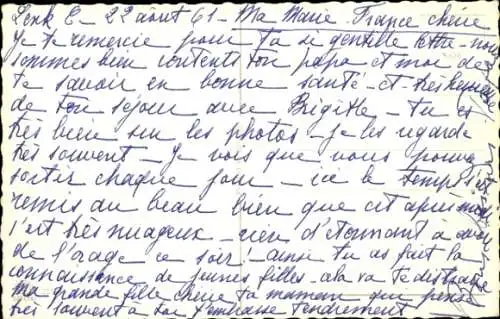 Lenk E - 22 août 61 - Ma Marie-France chérie
Je te remercie pour ta si gentille lettre - nous
sommes bien contents ton papa et moi de
te savoir en bonne santé - et très heureuse
de ton séjour avec Brigitte - tu es
très bien sur les photos - je les regarde
très souvent - Je vois que vous pouvez
sortir chaque jour - ici le temps s'est
remis au beau bien que cet après midi
c'est très nuageux - rien d'étonnant à avoir
de l'orage ce soir - ainsi tu as fait la
connaissance de jeunes filles - cela va te distraire
ma grande fille chérie ta maman qui pense
très souvent à toi t'embrasse tendrement